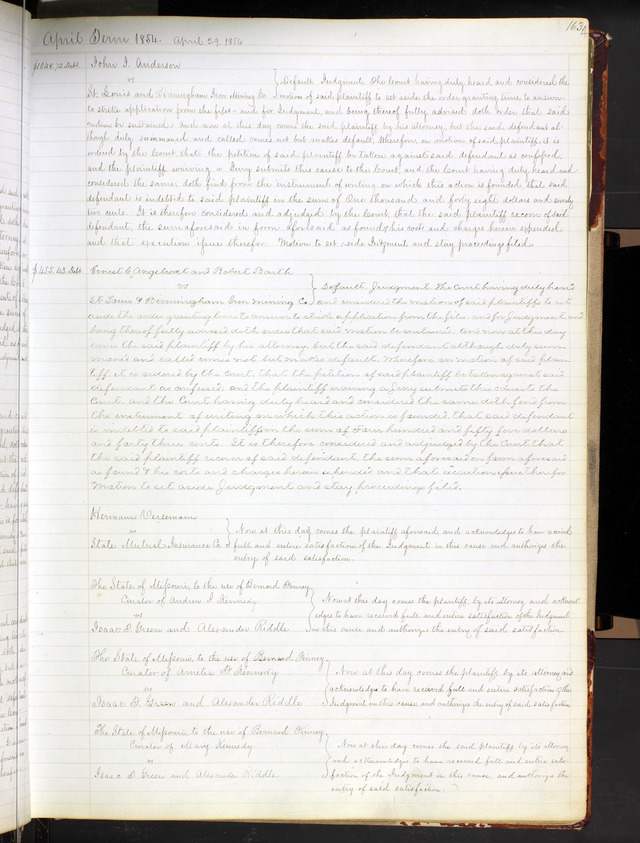 April Term 1854. April 29. 1854
163
$1048.72 Debt. John J. Anderson
vs
St. Louis and Birmingham Iron Mining Co. } Default Judgment. The Court having duly heard and considered the
motion of said plaintiff to set aside the order granting time to answer
to strike application from the files and for Judgment, and being thereof fully advised doth order that said
motion be sustained; and now at this day comes the said plaintiff by his attorney, but the said defendant al-
though duly summoned and called comes not but makes default. Wherefore, on motion of said plaintiff, it is
ordered by the Court, that the petition of said plaintiff be taken against said defendant as confessed,
and the plaintiff waiving a Jury submits this cause to the Court, and the Court having duly heard and
considered the same, doth find from the instrument of writing on which this action is founded, that said
defendant is indebted to said plaintiff in the sum of One thousand and forty eight dollars and seventy
two cents. It is therefore considered and adjudged by the Court, that the said plaintiff recover of said
defendant, the sum aforesaid in form aforesaid as found & his costs and charges herein expended
and that execution issue therefor. Motion to set aside Judgment and stay proceedings filed.
$455.43 Debt. Ernest C. Angelrodt and Robert Barth
vs
St. Louis & Birmingham Iron Mining Co. } Default Judgment. The Court having duly heard
and considered the motion of said plaintiffs to set
aside the order granting time to answer to strike application from the files and for Judgment and
being thereof fully advised doth order that said motion be sustained. And now at this day
come the said plaintiff by his attorney but the said defendant although duly sum-
moned and called comes not but makes default. Wherefore on motion of said plain-
tiff, it is ordered by the Court, that the petition of said plaintiff be taken against said
defendant as confessed, and the plaintiff waiving a Jury submits this cause to the
Court, and the Court having duly heard and considered the same doth find from
the instrument of writing on which this action is founded, that said defendant
is indebted to said plaintiff in the sum of Four hundred and fifty five dollars
and forty three cents. It is therefore considered and adjudged by the Court that
the said plaintiff recover of said defendant, the sum aforesaid in form aforesaid
as found & his costs and charges herein expended and that execution issue therefor
Motion to set aside Judgment and stay proceedings filed.
Hermann
vs
State Mutual Insurance Co. } Now at this day comes the plaintiff aforesaid and acknowledges to have received
full and entire satisfaction of the Judgment in this cause and authorizes the
entry of said satisfaction.
The State of Missouri, to the use of Bernard Finney,
Curator of Andrew J. Kennedy
vs
Isaac D. Green and Alexander Riddle } Now at this day comes the plaintiff, by its attorney and acknowl-
edges to have received full and entire satisfaction of the Judgment
in this cause and authorizes the entry of said satisfaction.
The State of Missouri, to the use of Bernard Finney
Curator of Amelia Kennedy
vs
Isaac D. Green and Alexander Riddle } Now at this day comes the plaintiff by its attorney and
acknowledges to have received full and entire satisfaction of the
Judgment in this cause, and authorizes the entry of said satisfaction
The State of Missouri to the use of Bernard Finney,
Curator of Mary Kennedy
vs
Isaac D. Green and Alexander Riddle } Now at this day comes the said plaintiff by its attorney,
and acknowledges to have received full and entire satis-
faction of the Judgment in this cause, and authorizes the
entry of said satisfaction.